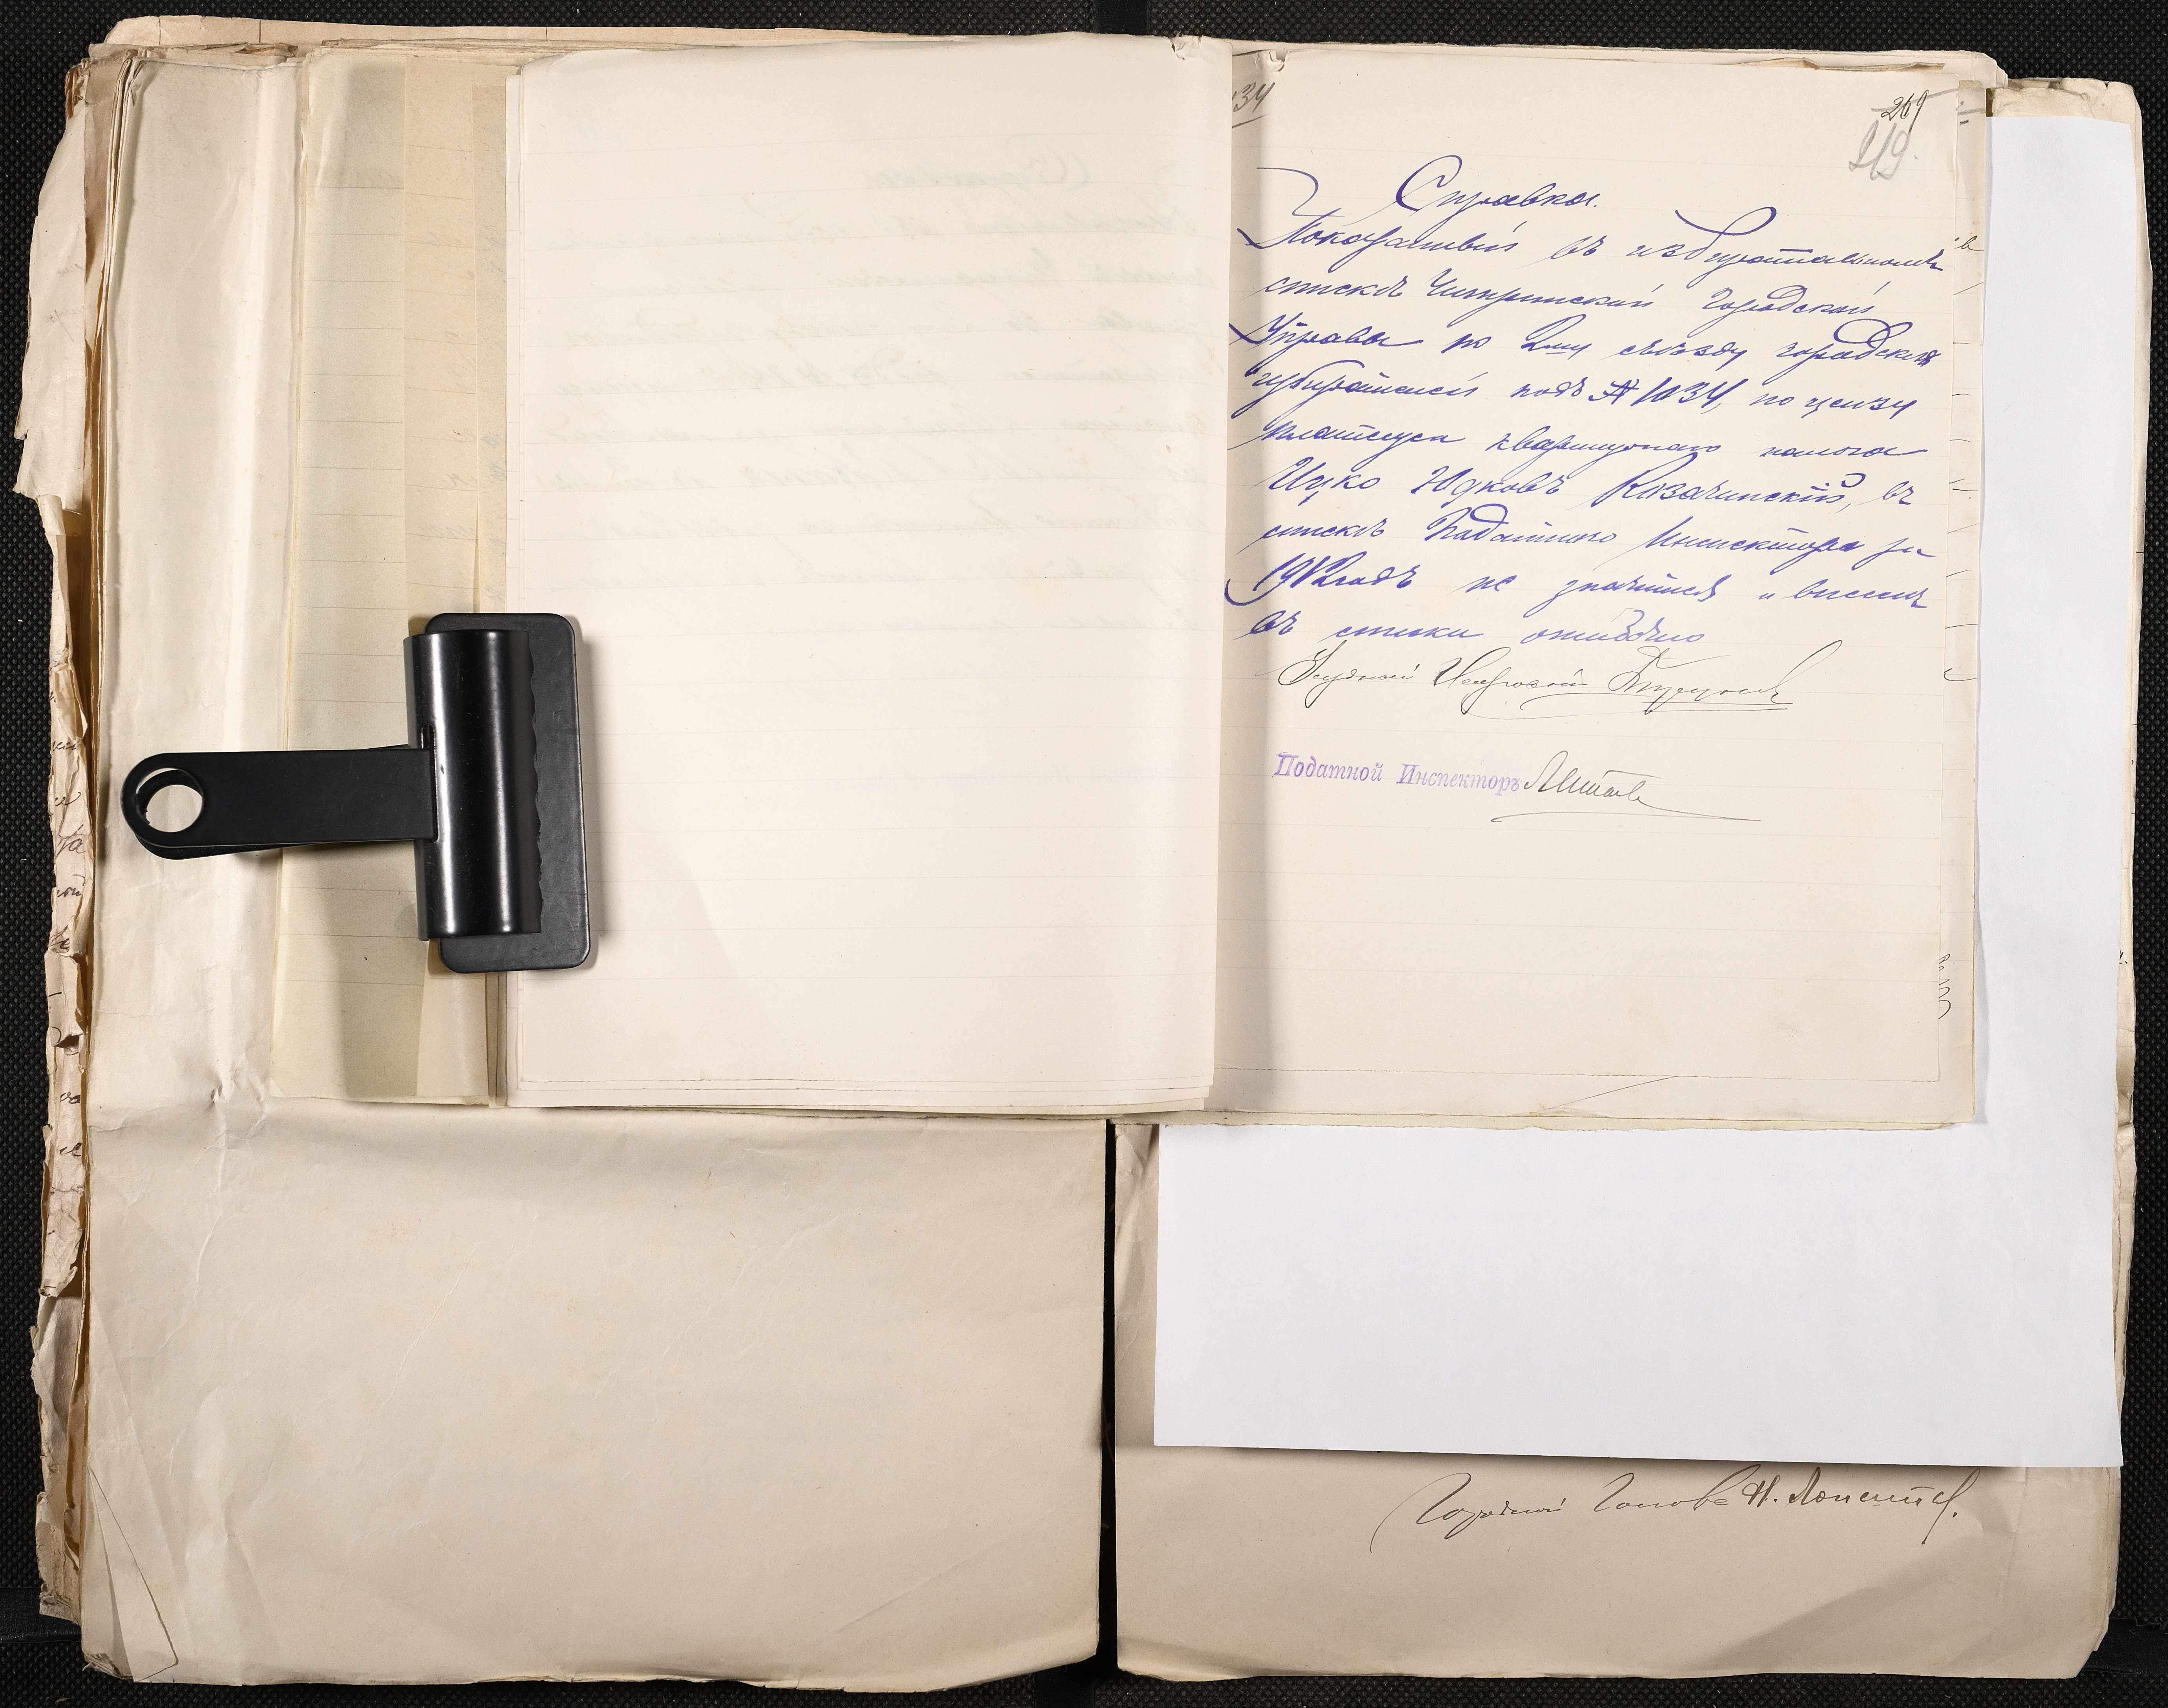 34
219
219.
Справка.
Показанный въ избирательномъ
спискѣ Чигиринской Городской
Управы по 2му съѣзду городскихъ
избирателей подъ № 1034, по цензу
платежа квартирнаго налога
Ицко Юдковъ Козачинскій, въ
спискѣ Податного Инспектора за
1912 годъ не значится и внесенъ
въ списки ошибочно
Податной Инспекторъ
Городской Голова Н.